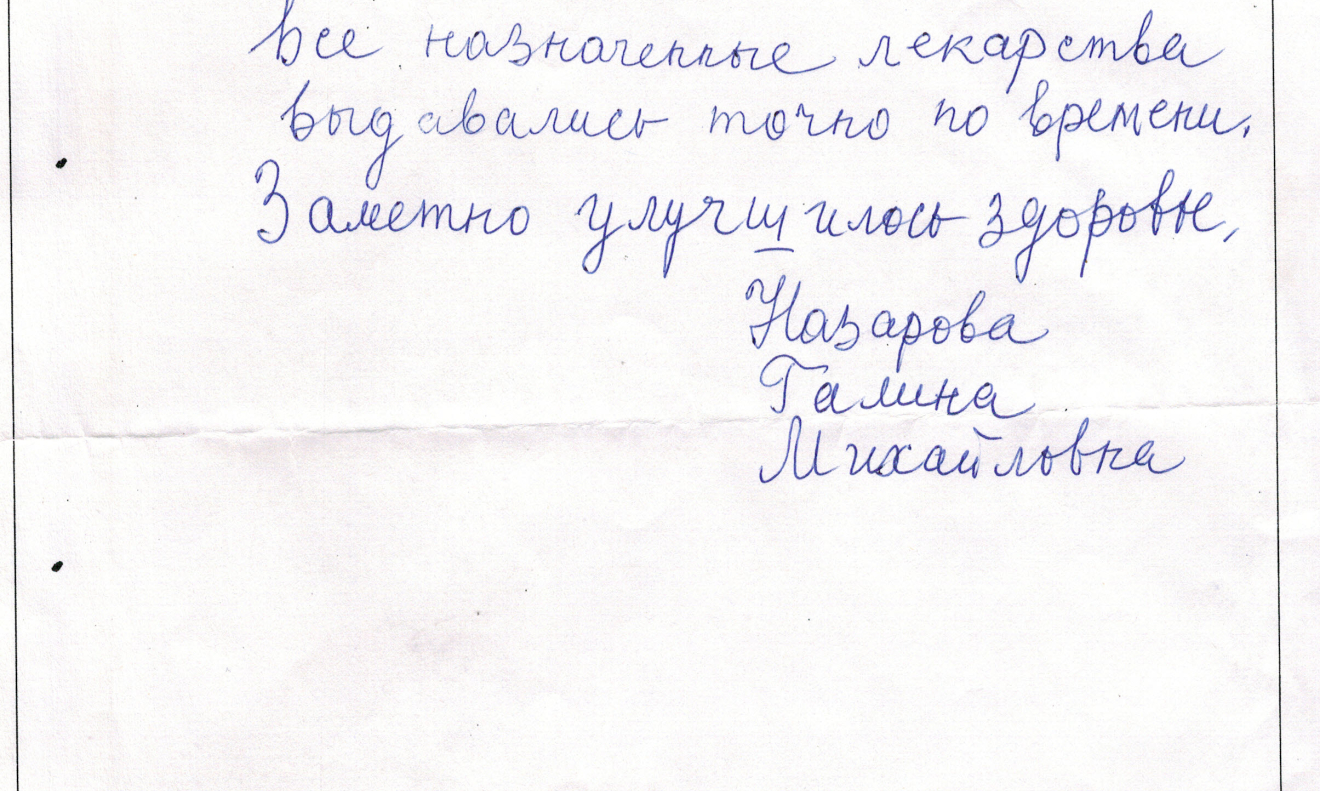 Все назначенные лекарства
выдавались точно по времени.
Заметно улучшилось здоровье,
Назарова
Галина
Михайловна